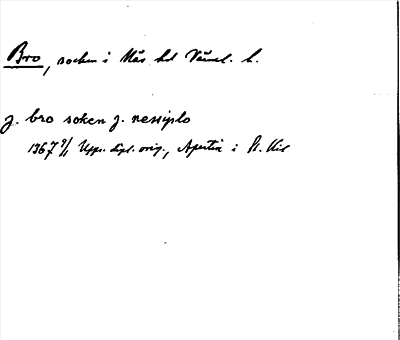 Bro, socken i Näs hd Värml. l.
j. bro soken j. nessiplo
1367 9/1 Upps. dipl. orig., Apertin i St. Kil